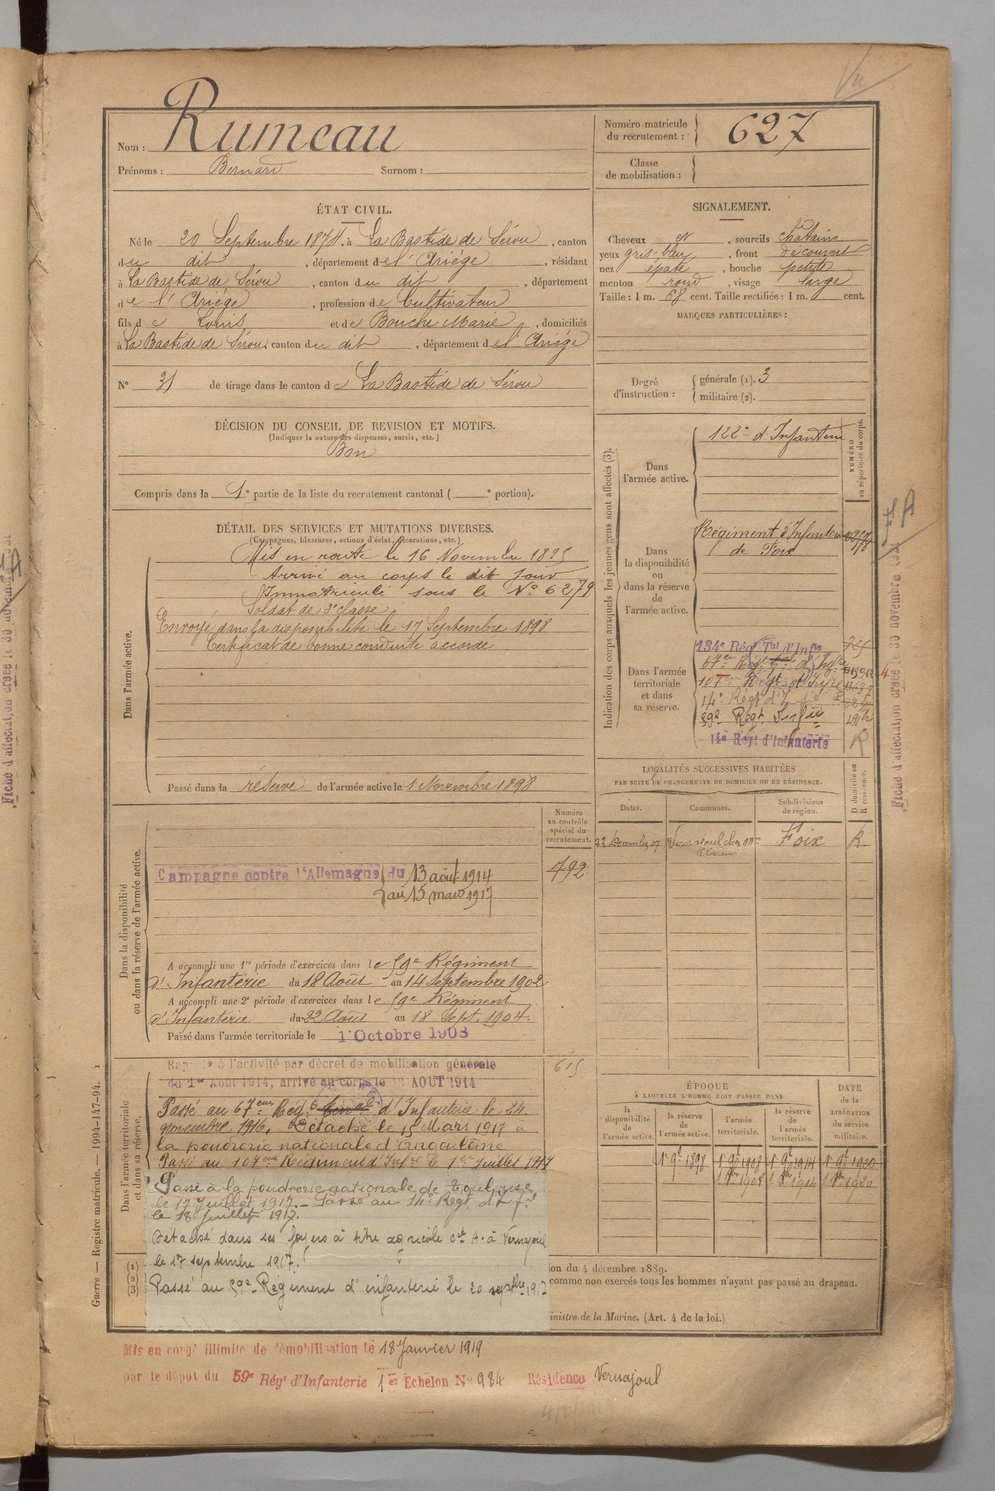 Vu
Nom : Rumeau
Prénoms : Bernard Surnom :
Numéro matricule du recrutement : 627
Classe de mobilisation :
ÉTAT CIVIL.
Né le 20 Septembre 1874, à La Bastide de Sérou, canton
du dit, département de l'Ariége, résidant
à La Bastide de Sérou, canton du dit, département
de l'Ariége, profession de Cultivateur
fils de Louis et de Bouche Marie, domiciliés
à La Bastide de Sérou canton du dit, département de l'Ariége
N° 31 de tirage dans le canton de La Bastide de Sérou
SIGNALEMENT.
Cheveux et, sourcils chatains
yeux gris-bleu, front découvert
nez épaté, bouche petite
menton rond, visage large
Taille : 1 m. 68 cent. Taille rectifiée : 1 m. cent.
MARQUES PARTICULIÈRES :
Degré d'instruction : générale (1). 3
militaire (2).
DÉCISION DU CONSEIL DE REVISION ET MOTIFS.
(Indiquer la nature des dispenses, sursis, etc.)
Bon
Compris dans la 1e partie de la liste du recrutement cantonal ( e portion).
DÉTAIL DES SERVICES ET MUTATIONS DIVERSES.
(Campagnes, blessures, actions d'éclat, décorations, etc.)
Dans l'armée active.
Mis en route le 16 Novembre 1895
Arrivé au corps le dit jour
Immatriculé sous le N° 6279
Soldat de 2e classe
Envoyé dans la disponibilité le 17 Septembre 1898
Certificat de bonne conduite accordé
Passé dans la réserve de l'armée active le 1 Novembre 1898
Indication des corps auxquels les jeunes gens sont affectés (3).
NUMÉRO au répertoire du corps.
Dans l'armée active.
122e d'Infanterie
Dans la disponibilité ou dans la réserve de l'armée active.
Régiment d'Infanterie
de Foix
Dans l'armée territoriale et dans sa réserve.
134e Régt Tal d'Infie
67e Régt d'Infie
107e Régt d'Infie
14e Regt d'
59e Regt Infie
14e Régt d'Infanterie R
LOCALITÉS SUCCESSIVES HABITÉES
PAR SUITE DE CHANGEMENTS DE DOMICILE OU DE RÉSIDENCE.
Dates. Communes. Subdivisions de région. D domicile ou R résidence.
22 Décembre 07 Foix R.
Dans la disponibilité ou dans la réserve de l'armée active.
Numéro au contrôle spécial du recrutement.
492
Campagne contre l'Allemagne du 13 août 1914
au 15 mars 1917
A accompli une 1re période d'exercices dans le 59e Régiment
d'Infanterie du 18 Août au 14 Septembre 1902
A accompli une 2e période d'exercices dans le 59e Régiment
d'Infanterie du 22 Août au 18 Sept. 1904.
Passé dans l'armée territoriale le 1 Octobre 1908
Dans l'armée territoriale et dans sa réserve.
615
Rappelé à l'activité par décret de mobilisation générale
du 1er Août 1914, arrivé au corps le AOUT 1914
Passé au 67eme Reg. d'Infanterie le 24
novembre 1916. Détaché le 15 Mars 1917 à
la poudrerie nationale d'Angoulême
Passé au 107eme Régiment d'Infie le 1er juillet 1917
Passé à la poudrerie nationale de Toulouse
le 17 Juillet 1917. Passé au 14e Regt d'Inf.
le 18 Juillet 1917.
Détaché dans ses foyers à titre agricole cat A. à Vernajoul
le 17 septembre 1917.
Passé au 59e Régiment d'infanterie le 20 septbre 1917
ÉPOQUE
À LAQUELLE L'HOMME DOIT PASSER DANS
la disponibilité de l'armée active.
la réserve de l'armée active.
l'armée territoriale.
la réserve de l'armée territoriale.
DATE de la LIBÉRATION du service militaire.
1er 9e 1898
1er 9e 1920
ion du 4 décembre 1889.
comme non exercés tous les hommes n'ayant pas passé au drapeau.
inistre de la Marine. (Art. 4 de la loi.)
(1)
(2)
(3)
Guerre — Registre matricule. — 1994-147-94.
Mis en congé illimité de démobilisation le 18 Janvier 1919
par le dépot du 59e Régt d'Infanterie 1er Echelon N° 984 Résidence Vernajoul
FA
Fiche d'affectation créée le 30 novembre
Fiche d'affectation créée le 30 novembre